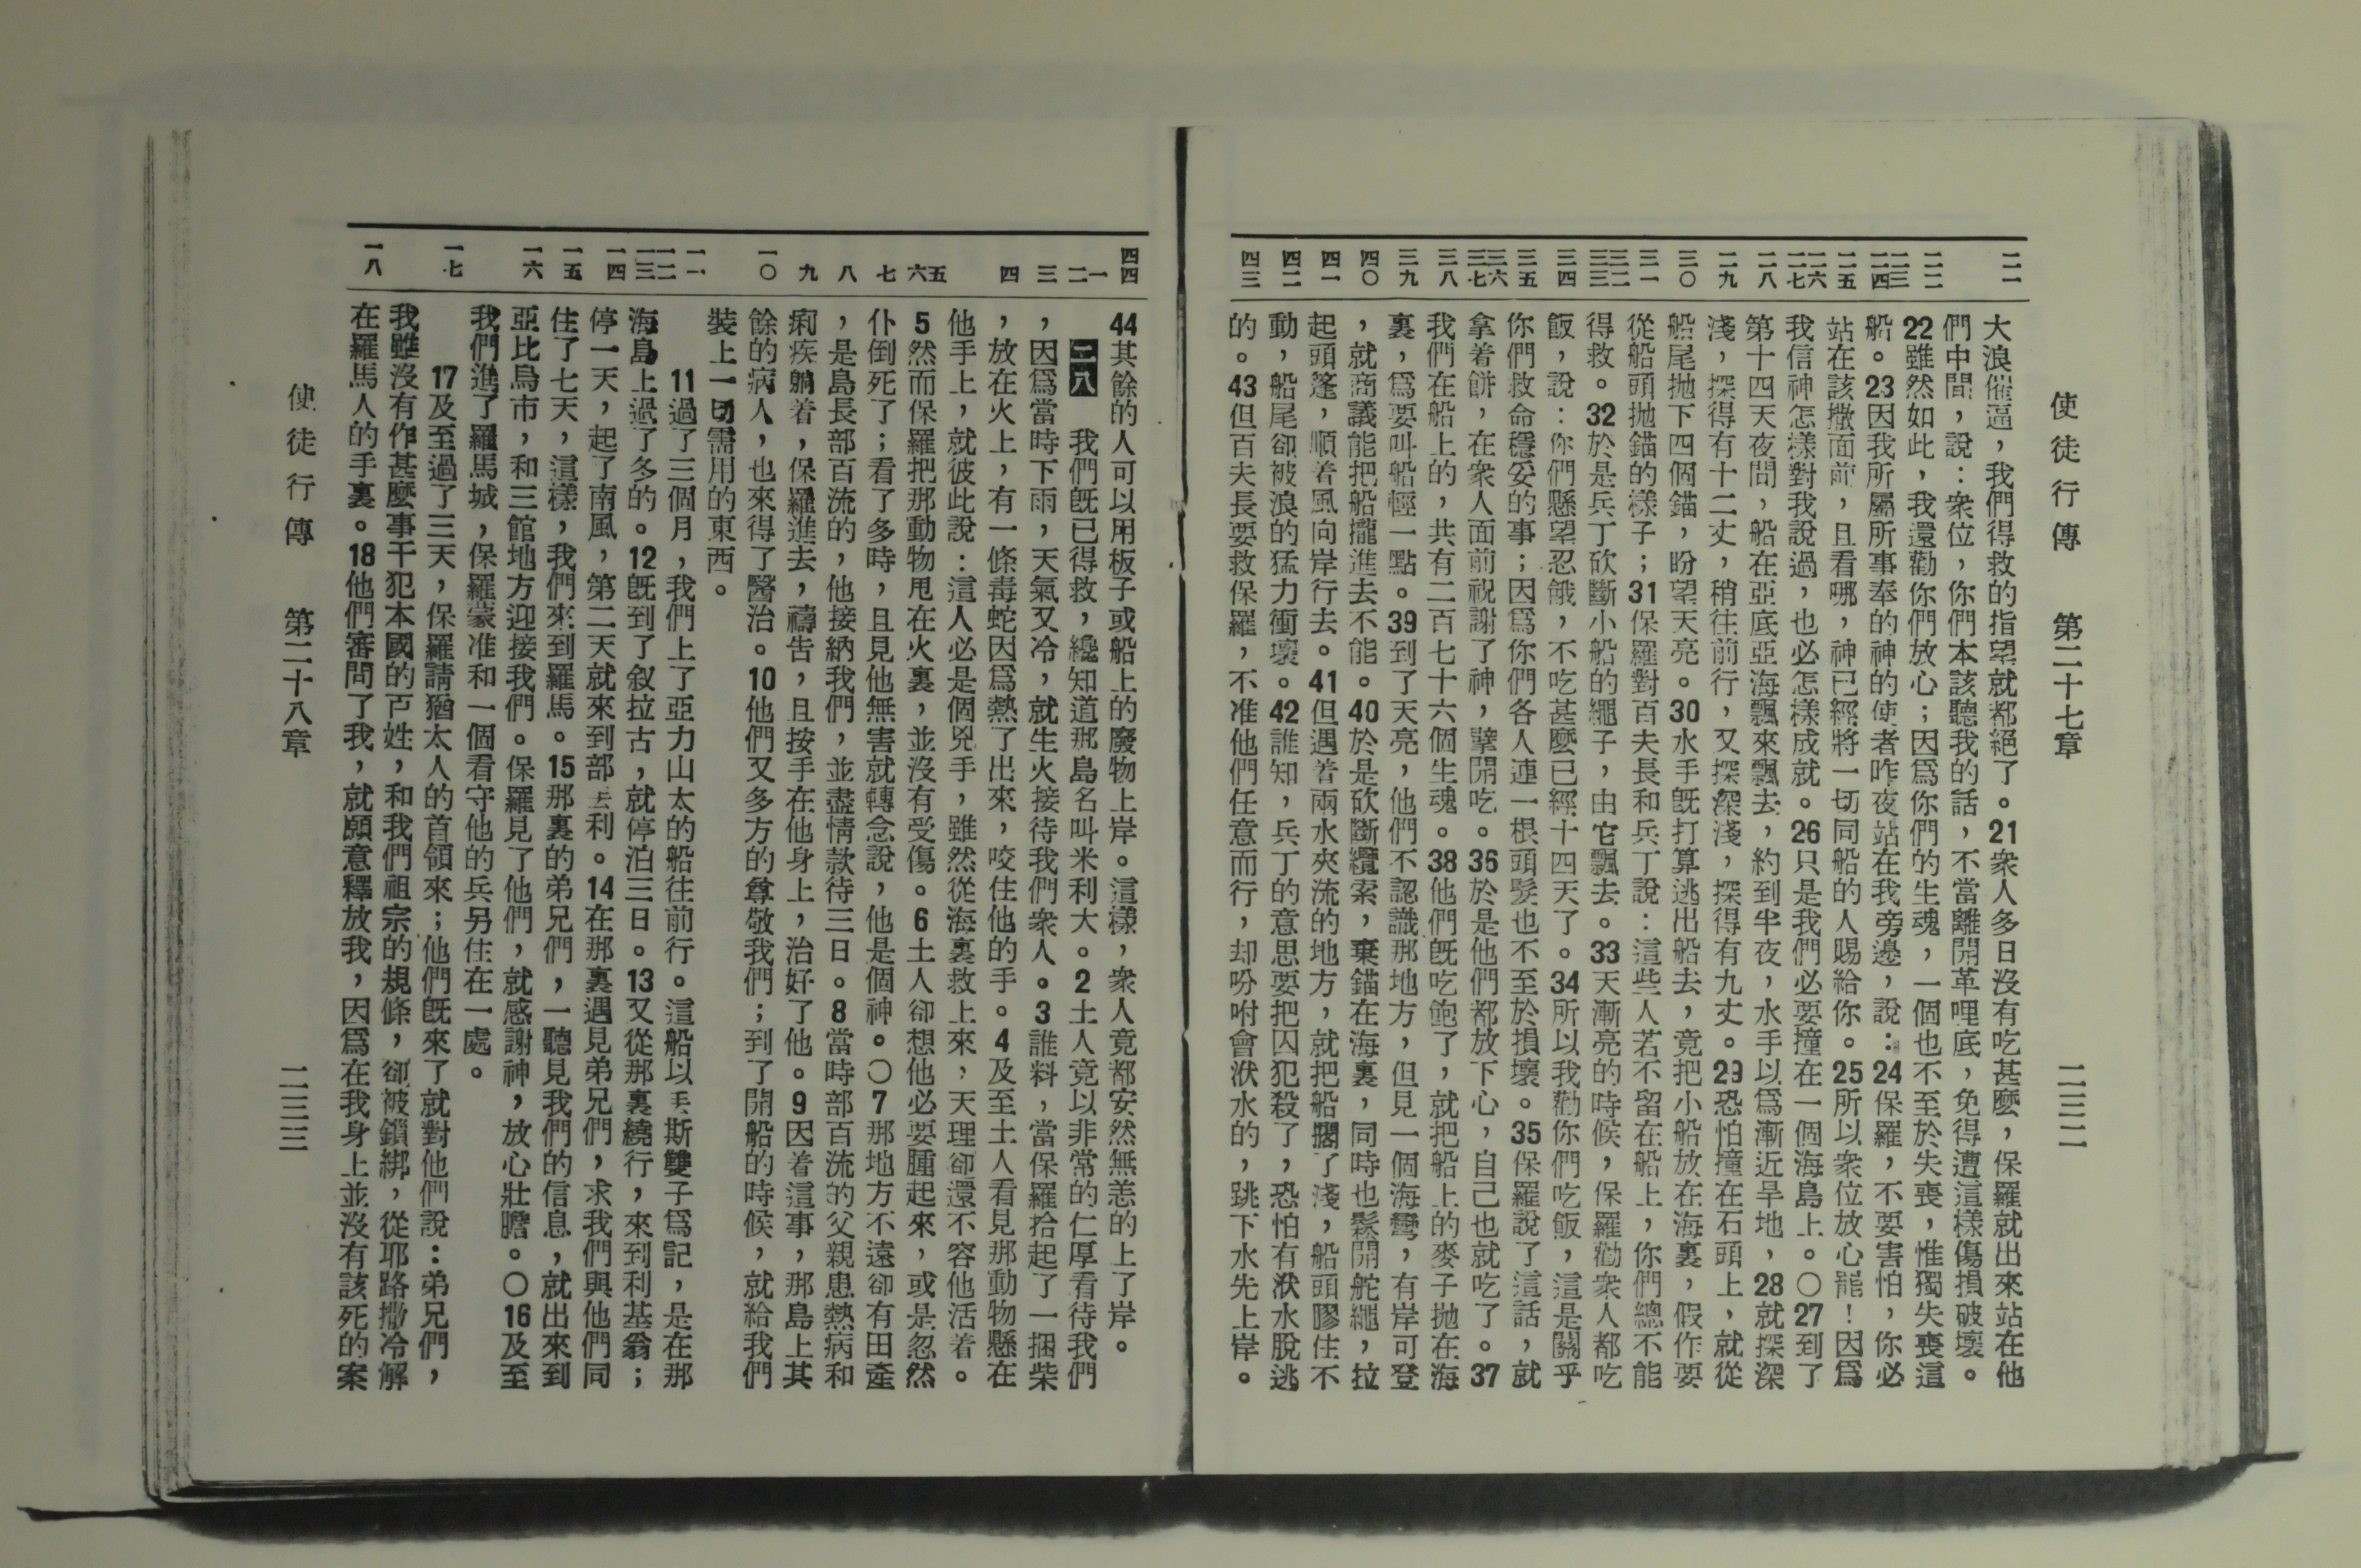 使徒行傳　第二十七章　二三二
二一
二二
二三
二四
二五
二六
二七
二八
二九
三〇
三一
三二
三三
三四
三五
三六
三七
三八
三九
四〇
四一
四二
四三
大浪催逼，我們得救的指望就都絕了。21衆人多日沒有吃甚麼，保羅就出來站在他
們中間，說：衆位，你們本該聽我的話，不當離開革哩底，免得遭這樣傷損破壞。
22雖然如此，我還勸你們放心；因爲你們的生魂，一個也不至於失喪，惟獨失喪這
船。23因我所屬所事奉的神的使者昨夜站在我旁邊，說：24保羅，不要害怕，你必
站在該撒面前，且看哪，神已經將一切同船的人賜給你。25所以衆位放心罷！因爲
我信神怎樣對我說過，也必怎樣成就。26只是我們必要撞在一個海島上。〇27到了
第十四天夜間，船在亞底亞海飄來飄去，約到半夜，水手以爲漸近旱地，28就探深
淺，探得有十二丈，稍往前行，又探深淺，探得有九丈。29恐怕撞在石頭上，就從
船尾拋下四個錨，盼望天亮。30水手既打算逃出船去，竟把小船放在海裏，假作要
從船頭拋錨的樣子；31保羅對百夫長和兵丁說：這些人若不留在船上，你們總不能
得救。32於是兵丁砍斷小船的繩子，由它飄去。33天漸亮的時候，保羅勸衆人都吃
飯，說：你們懸望忍餓，不吃甚麼已經十四天了。34所以我勸你們吃飯，這是關乎
你們救命穩妥的事；因爲你們各人連一根頭髮也不至於損壞。35保羅說了這話，就
拿着餅，在衆人面前祝謝了神，擘開吃。36於是他們都放下心，自己也就吃了。37
我們在船上的，共有二百七十六個生魂。38他們既吃飽了，就把船上的麥子拋在海
裏，爲要叫船輕一點。39到了天亮，他們不認識那地方，但見一個海彎，有岸可登
，就商議能把船攏進去不能。40於是砍斷纜索，棄錨在海裏，同時也鬆開舵繩，拉
起頭篷，順着風向岸行去。41但遇着兩水夾流的地方，就把船擱了淺，船頭膠住不
動，船尾卻被浪的猛力衝壞。42誰知，兵丁的意思要把囚犯殺了，恐怕有洑水脫逃
的。43但百夫長要救保羅，不准他們任意而行，却吩咐會洑水的，跳下水先上岸。
四四
一
二
三
四
五
六
七
八
九
一〇
一一
一二
一三
一四
一五
一六
一七
一八
44其餘的人可以用板子或船上的廢物上岸。這樣，衆人竟都安然無恙的上了岸。
二八　我們既已得救，纔知道那島名叫米利大。2土人竟以非常的仁厚看待我們
，因爲當時下雨，天氣又冷，就生火接待我們衆人。3誰料，當保羅拾起了一捆柴
，放在火上，有一條毒蛇因爲熱了出來，咬住他的手。4及至土人看見那動物懸在
他手上，就彼此說：這人必是個兇手，雖然從海裏救上來，天理卻還不容他活着。
5然而保羅把那動物甩在火裏，並沒有受傷。6土人卻想他必要腫起來，或是忽然
仆倒死了；看了多時，且見他無害就轉念說，他是個神。〇7那地方不遠卻有田產
，是島長部百流的，他接納我們，並盡情款待三日。8當時部百流的父親患熱病和
痢疾躺着，保羅進去，禱告，且按手在他身上，治好了他。9因着這事，那島上其
餘的病人，也來得了醫治。10他們又多方的尊敬我們；到了開船的時候，就給我們
裝上一切需用的東西。
11過了三個月，我們上了亞力山太的船往前行。這船以丟斯雙子爲記，是在那
海島上過了冬的。12既到了叙拉古，就停泊三日。13又從那裏繞行，來到利基翁；
停一天，起了南風，第二天就來到部丟利。14在那裏遇見弟兄們，求我們與他們同
住了七天，這樣，我們來到羅馬。15那裏的弟兄們，一聽見我們的信息，就出來到
亞比烏市，和三館地方迎接我們。保羅見了他們，就感謝神，放心壯膽。〇16及至
我們進了羅馬城，保羅蒙准和一個看守他的兵另住在一處。
17及至過了三天，保羅請猶太人的首領來；他們既來了就對他們說：弟兄們，
我雖沒有作甚麼事干犯本國的百姓，和我們祖宗的規條，卻被鎖綁，從耶路撒冷解
在羅馬人的手裏。18他們審問了我，就願意釋放我，因爲在我身上並沒有該死的案
使徒行傳　第二十八章　二三三